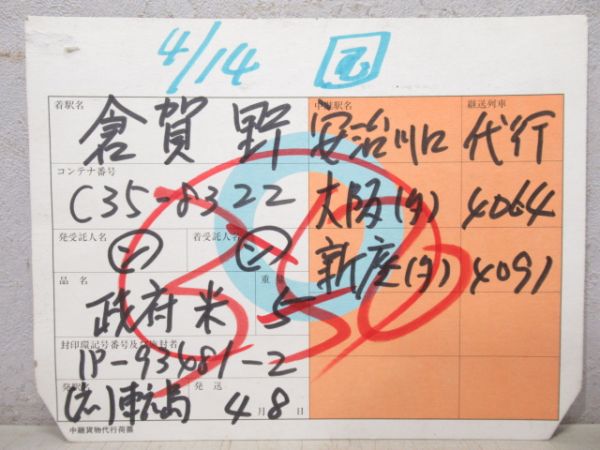 4/14
着駅名 倉賀野
中継駅名 継送列車
安治川口 代行
コンテナ番号
C35-8322
大阪(タ) 4064
発受託人名 着受託人名
新座(タ) 4091
品名 重
政府米 5
封印環記号番号及び施封者
1P-93481-2
発駅名 発送
島 4月8日
中継貨物代行荷票